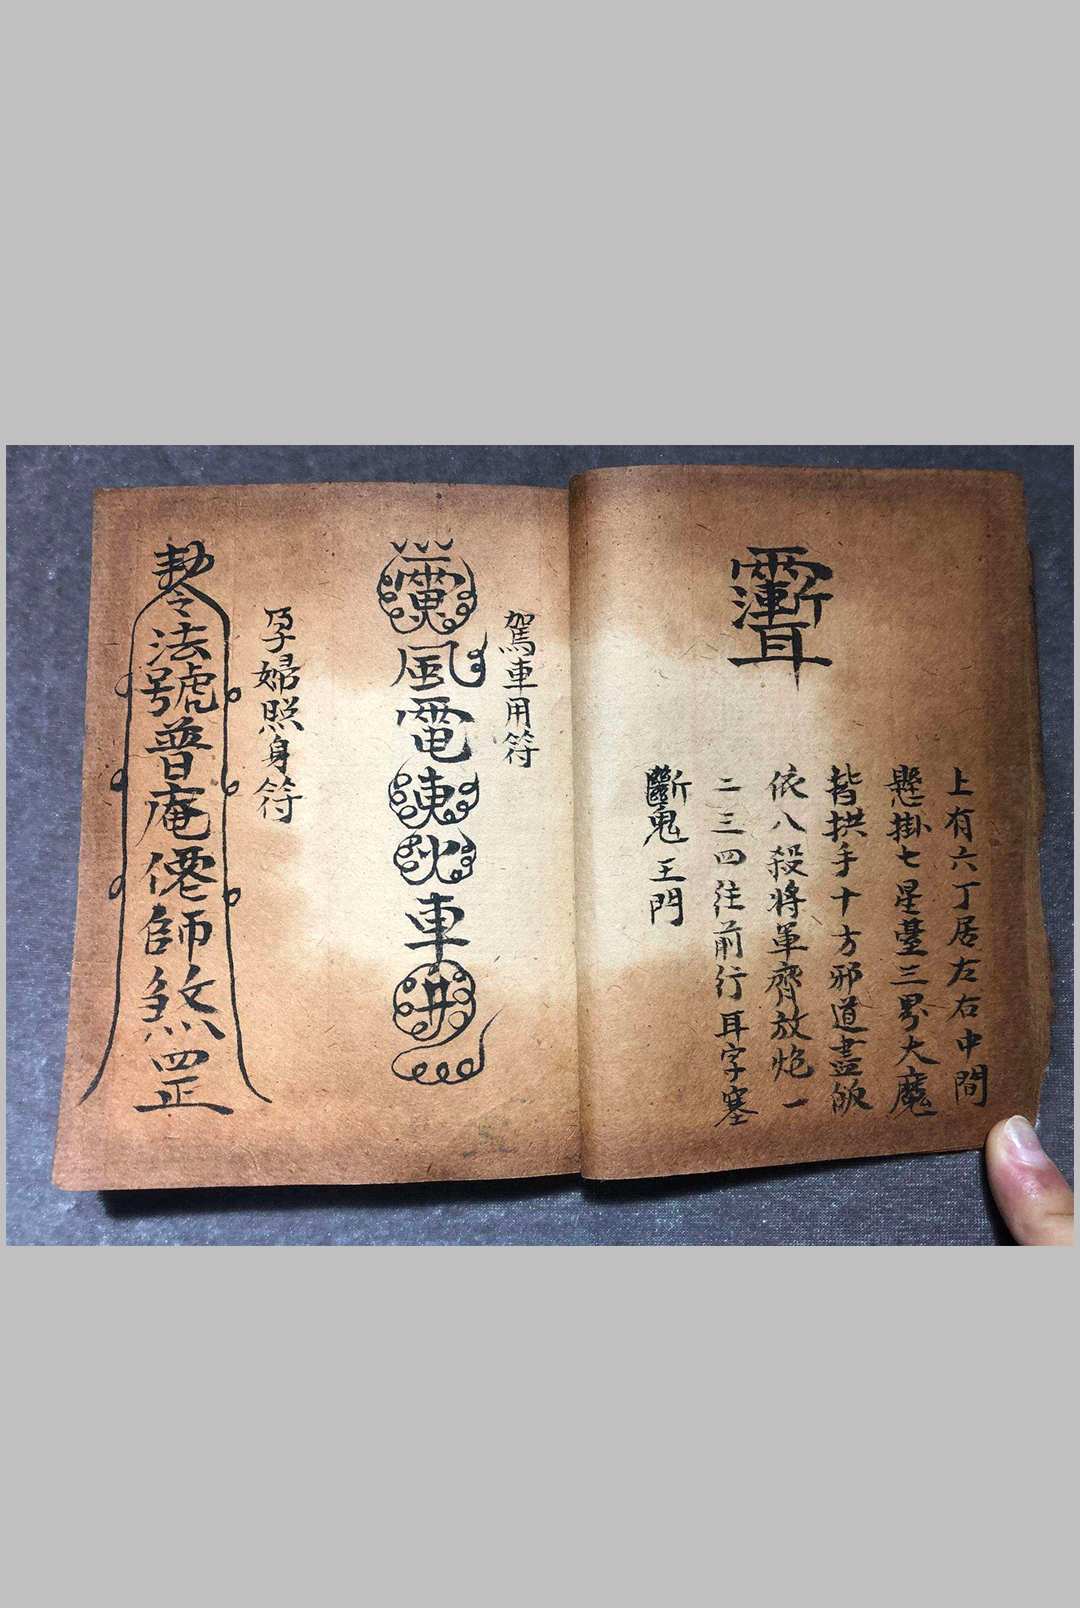 上有六丁居左右中間
懸掛七星臺三界大魔
皆拱手十方邪道盡皈
依八殺將軍齊放炮一
二三四往前行耳字塞
斷鬼王門
駕車用符
風電
車
孕婦照身符
敕令法號普庵僊師煞罡